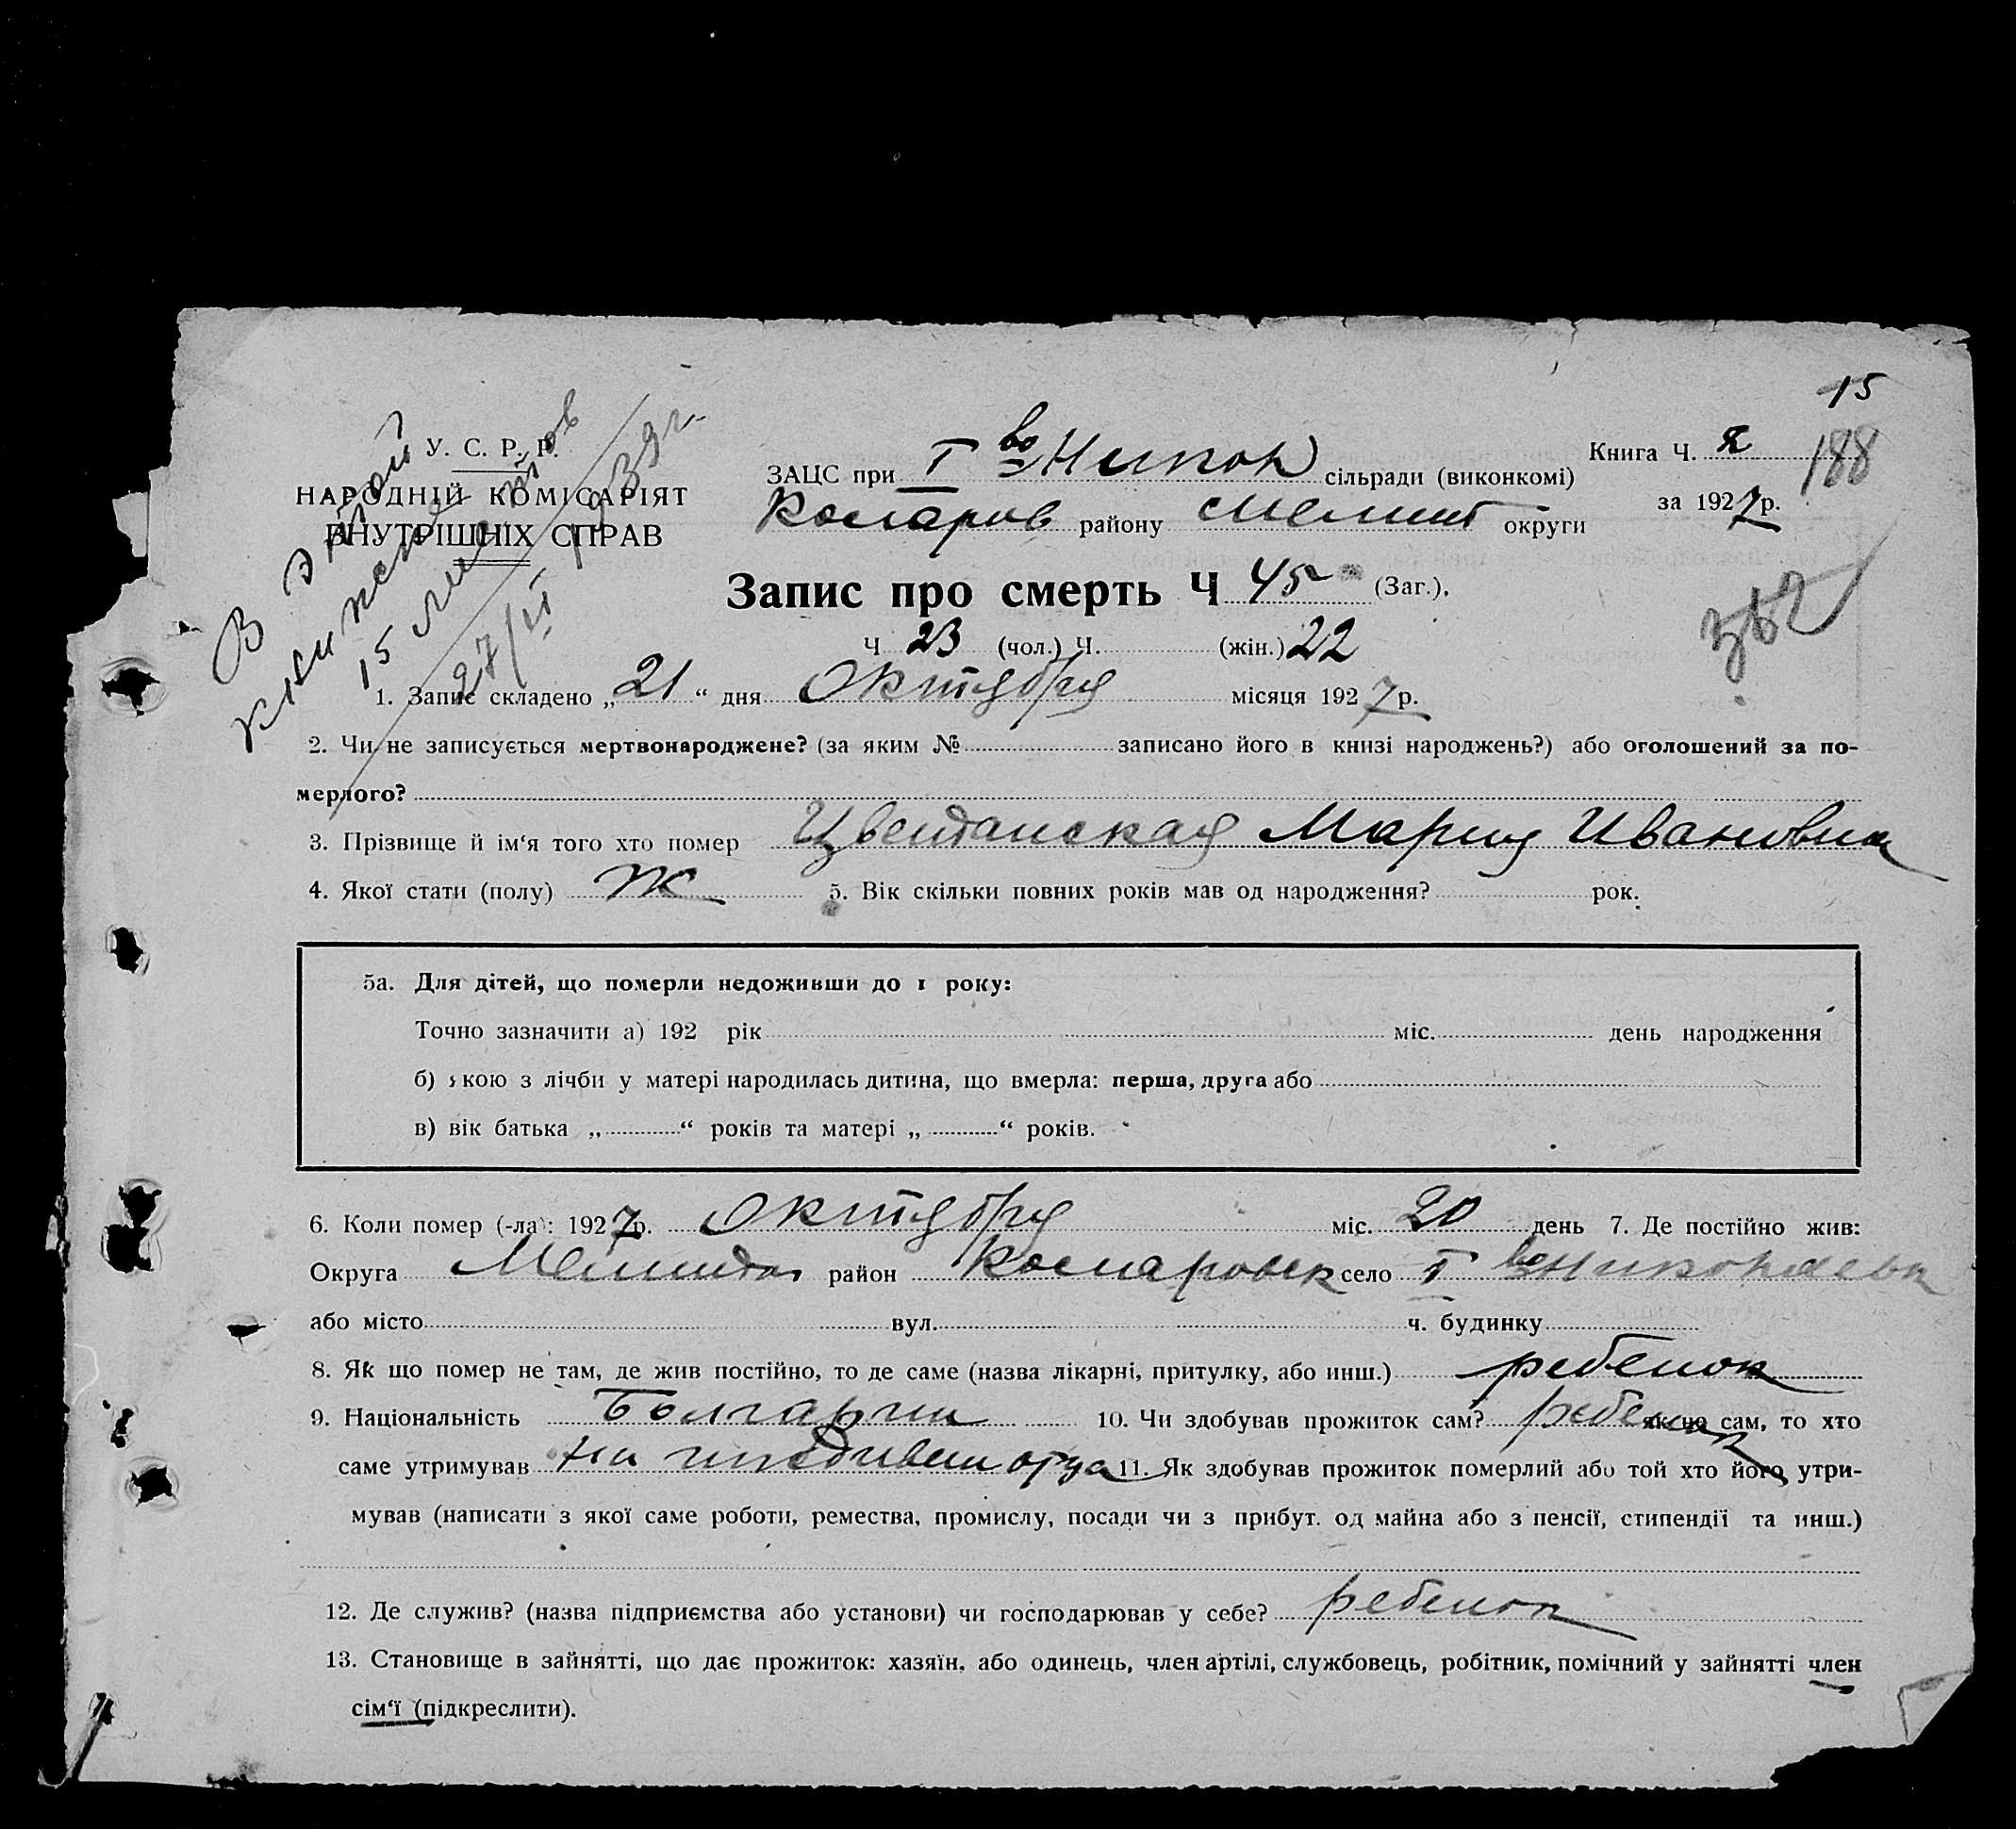 15
У. С. Р. Р.
НАРОДНІЙ КОМІСАРІЯТ
ВНУТРІШНІХ СПРАВ
В этой
книжке
15 листов
27/VI 1939 г.
ЗАЦС при I во Никол сільради (виконкомі)
Книга Ч. 2
188
Комаров району Мелит округи
за 1927 р.
Запис про смерть Ч 45 (Заг.).
Ч 23 (чол.) Ч. (жін.) 22
1. Запис складено „21“ дня Октября місяця 1927 р.
2. Чи не записується мертвонароджене? (за яким № записано його в книзі народжень?) або оголошений за по-
мерлого?
3. Прізвище й ім‘я того хто помер Цветанская Мария Ивановна
4. Якої стати (полу) Ж 5. Вік скільки повних років мав од народження? рок.
5а. Для дітей, що померли недоживши до 1 року:
Точно зазначити а) 192 рік міс. день народження
б) якою з лічби у матері народилась дитина, що вмерла: перша, друга або
в) вік батька „ “ років та матері „ “ років.
6. Коли помер (-ла): 1927 р. Октября міс. 20 день 7. Де постійно жив:
Округа район село I во
або місто вул. ч. будинку
8. Як що помер не там, де жив постійно, то де саме (назва лікарні, притулку, або инш.) ребенок
9. Національність Болгарин 10. Чи здобував прожиток сам? ребенок як не сам, то хто
саме утримував На иждивен отца 11. Як здобував прожиток померлий або той хто його утри-
мував (написати з якої саме роботи, ремества, промислу, посади чи з прибут. од майна або з пенсії, стипендії та инш.)
12. Де служив? (назва підприємства або установи) чи господарював у себе? ребенок
13. Становище в зайнятті, що дає прожиток: хазяїн, або одинець, член артілі, службовець, робітник, помічний у зайнятті член
сім‘ї (підкреслити).